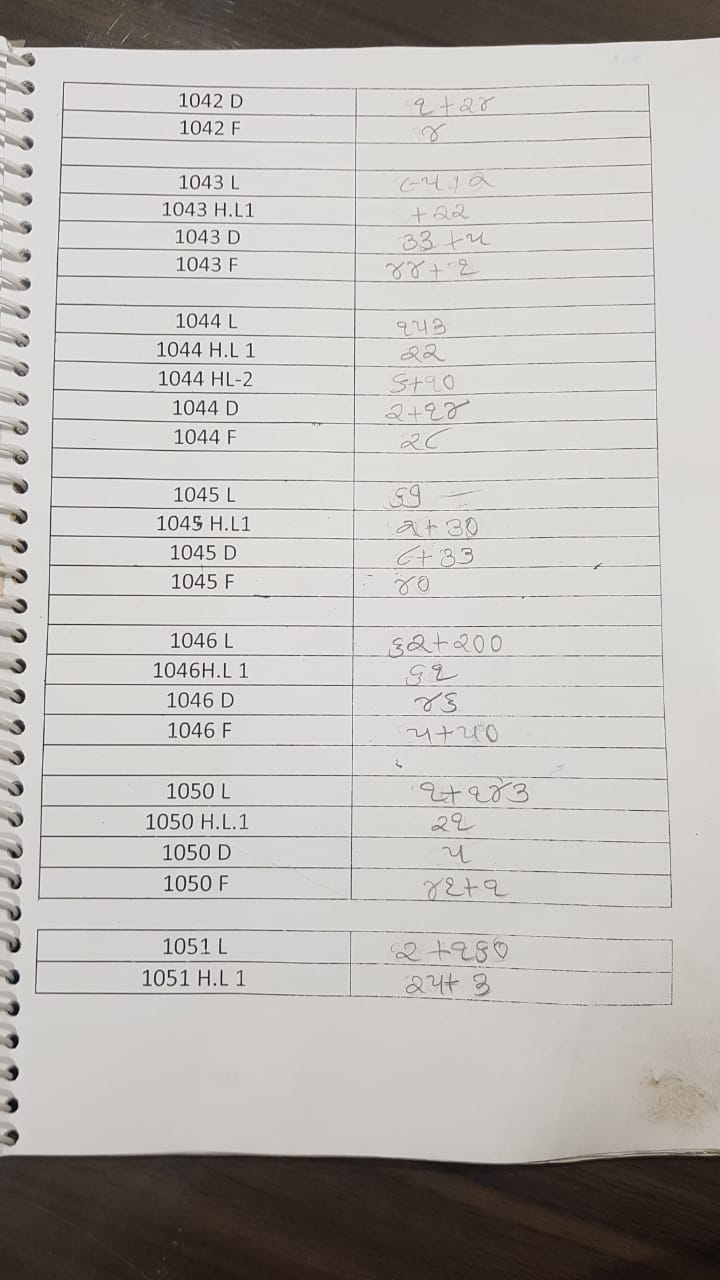 1042 D ૧+૨૪
1042 F ૪
1043 L
1043 H.L1 +૨૨
1043 D ૩૩+૫
1043 F ૪૪+૧
1044 L ૧૫૩
1044 H.L 1 ૨૨
1044 HL-2 ૬+૧૦
1044 D ૨+૧૪
1044 F ૨૮
1045 L ૬૭
1045 H.L1 ૨+૩૦
1045 D ૮+૩૩
1045 F ૪૦
1046 L ૬૨+૨૦૦
1046H.L 1 ૬૧
1046 D ૪૬
1046 F ૫+૫૦
1050 L ૧+૧૪૩
1050 H.L.1 ૨૧
1050 D ૫
1050 F ૪૧+૧
1051 L ૨+૧૬૦
1051 H.L 1 ૨૫+૩